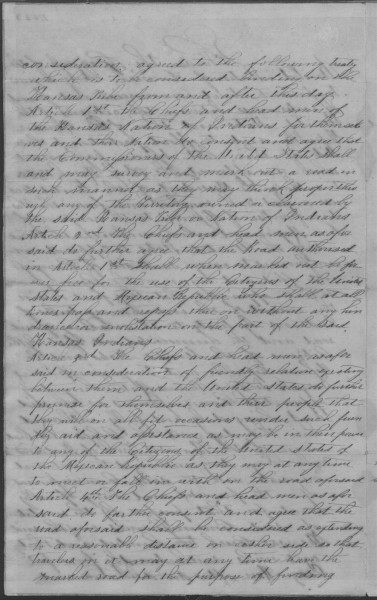 consideration agreed to the following treaty
which is to be considered binding on the
Kansas Tribe from and after this day.
Article 1st The Chiefs and head men of
the Kansas Nation of Indians for themsel
ves and their Nation do consent and agree that
the Commissioners of the United States shall
and may survey and mark out a road in
such manner as they may think proper thro
ugh any of the Territory owned or claimed by
the said Kansas Tribe or Nation of Indians
Article 2nd The Chiefs and head men as afor
said do further agree that the Road authorised
in Article 1st shall when marked out be for
ever free for the use of the Citizens of the United
States and Mexican Republic who shall at all
times pass and repass thereon without any hin
drance or molestation on the part of the said
Kansas Indians
Article 3rd The Chiefs and head men as afor
said in consideration of friendly relations existing
between them and the United States do further
promise for themselves and their people that
they will on all fit occasions render such frien
dly aid and assistance as may be in their power
to any of the Citizens of the United States or
the Mexican Republic as they may at any time
to meet or fall in with on the road aforsaid
Article 4th The Chiefs and head men as afor
said do further consent and agree that the
road aforsaid shall be considered as extending
to a reasonable distance on either side so that
travelers in it may at any time leave the
marked road for the purpose of finding